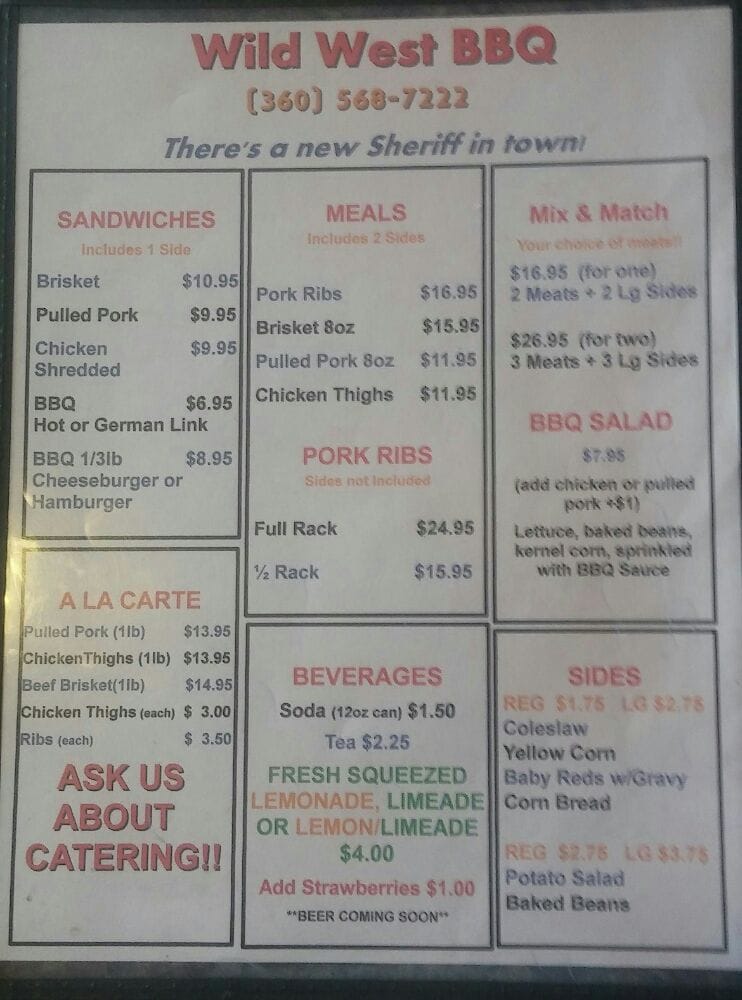 Wild West BBQ
(360) 568-7222
There's a new Sheriff in town!
SANDWICHES
Includes 1 Side
Brisket $10.95
Pulled Pork $9.95
Chicken $9.95
Shredded
BBQ $6.95
Hot or German Link
BBQ 1/3lb $8.95
Cheeseburger or
Hamburger
MEALS
Includes 2 Sides
Pork Ribs $16.95
Brisket 8oz $15.95
Pulled Pork 8oz $11.95
Chicken Thighs $11.95
PORK RIBS
Sides not Included
Full Rack $24.95
½ Rack $15.95
Mix & Match
Your choice of meats!!
$16.95 (for one)
2 Meats + 2 Lg Sides
$26.95 (for two)
3 Meats + 3 Lg Sides
BBQ SALAD
$7.95
(add chicken or pulled
pork +$1)
Lettuce, baked beans,
kernel corn, sprinkled
with BBQ Sauce
A LA CARTE
Pulled Pork (1lb) $13.95
ChickenThighs (1lb) $13.95
Beef Brisket(1lb) $14.95
Chicken Thighs (each) $ 3.00
Ribs (each) $ 3.50
ASK US
ABOUT
CATERING!!
BEVERAGES
Soda (12oz can) $1.50
Tea $2.25
FRESH SQUEEZED
LEMONADE, LIMEADE
OR LEMON/LIMEADE
$4.00
Add Strawberries $1.00
**BEER COMING SOON**
SIDES
REG $1.75 LG $2.75
Coleslaw
Yellow Corn
Baby Reds w/Gravy
Corn Bread
REG $2.75 LG $3.75
Potato Salad
Baked Beans